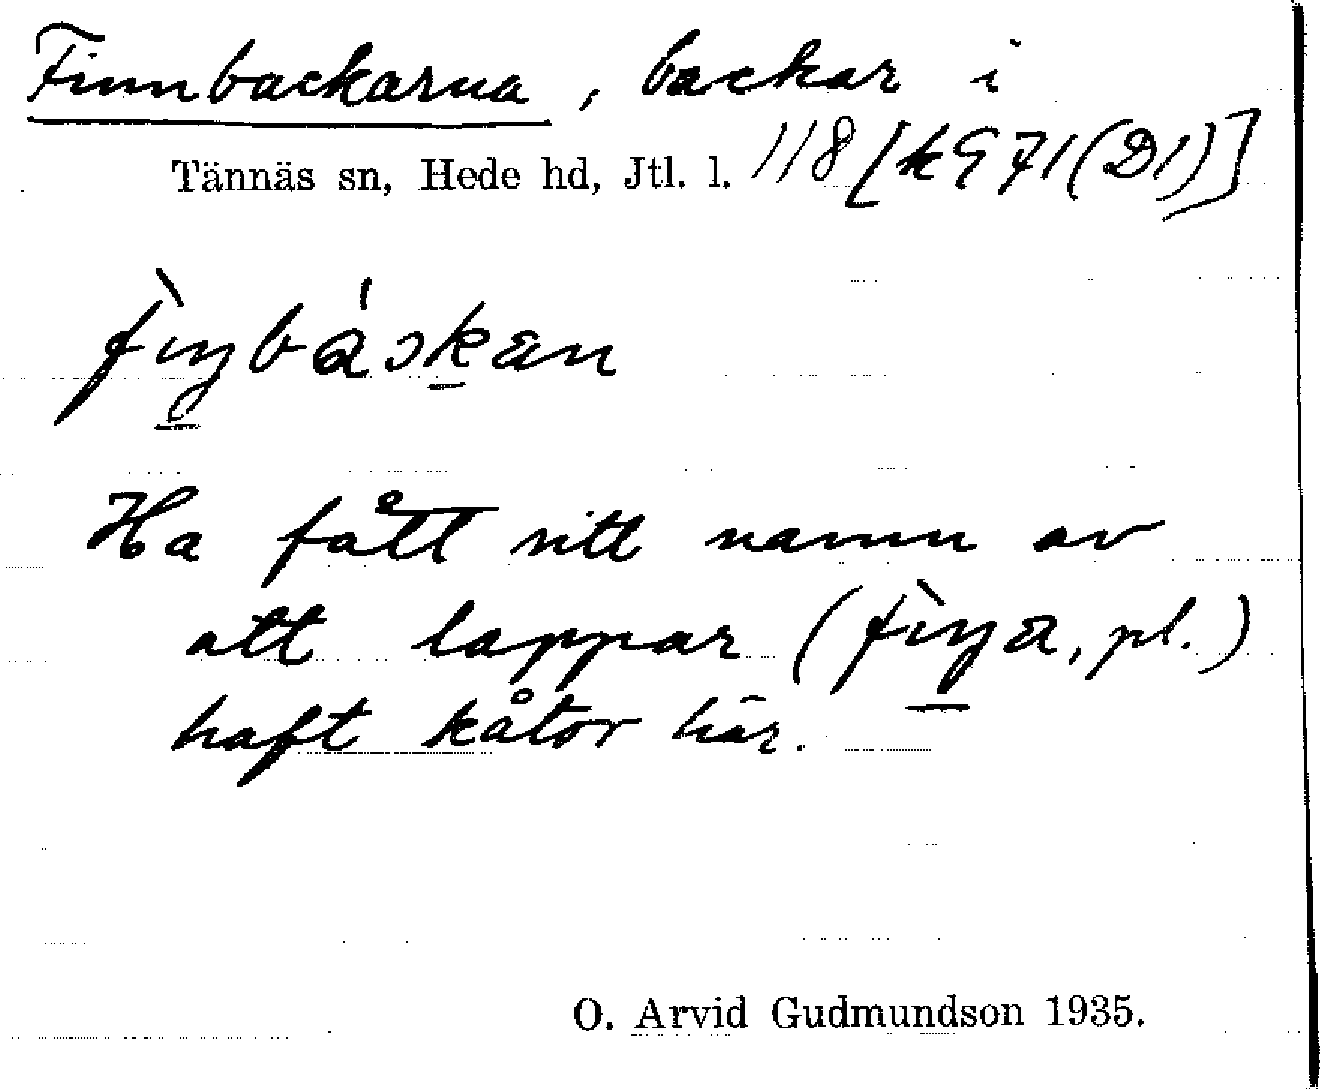 Finnbackarna, backar i
Tännäs sn, Hede hd, Jtl. l. 118 [k971(D1)]
Ha fått sitt namn av
att lappar (, pl.)
haft kåtor här.
O. Arvid Gudmundson 1935.